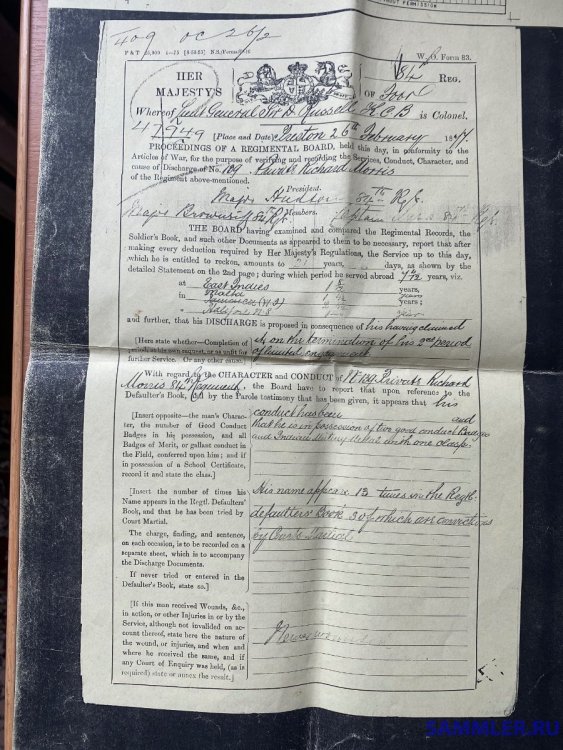 WITHOUT PERMISSION
409 OC 26/2
W. O. Form 83.
HER
MAJESTY'S
84th REG.
OF Foot
Whereof Lieut General Sir D. Russell K.C.B is Colonel.
47949
[Place and Date] Preston 26th February 1877
PROCEEDINGS OF A REGIMENTAL BOARD, held this day, in conformity to the
Articles of War, for the purpose of verifying and recording the Services, Conduct, Character, and
cause of Discharge of No. 409 Private Richard Morris
of the Regiment above-mentioned.
President.
Major Hudson 84th Rgt.
Members.
Major 84th Rgt. Captain 84th Rgt
THE BOARD having examined and compared the Regimental Records, the
Soldier's Book, and such other Documents as appeared to them to be necessary, report that after
making every deduction required by Her Majesty's Regulations, the Service up to this day,
which he is entitled to reckon, amounts to 21 years, days, as shown by the
detailed Statement on the 2nd page; during which period he served abroad years, viz.
at East Indies years,
in Malta years
Jamaica (W.I) years;
Halifax N.S year
and further, that his DISCHARGE is proposed in consequence of his having claimed
[Here state whether—Completion of
period, at his own request, or as unfit for
further Service. Or any other cause.]
it, on the termination of his 2nd period
of limited engagement
With regard to the CHARACTER and CONDUCT of Private Richard
Morris 84th Regiment, the Board have to report that upon reference to the
Defaulter's Book, by the Parole testimony that has been given, it appears that his
[Insert opposite—the man's Character,
the number of Good Conduct
Badges in his possession, and all
Badges of Merit, or gallant conduct in
the Field, conferred upon him; and if
in possession of a School Certificate,
record it and state the class.]
conduct has been and
that he is in possession of two good conduct Badges
and Indian Mutiny Medal with one clasp.
[Insert the number of times his
Name appears in the Regtl. Defaulters'
Book, and that he has been tried by
Court Martial.
The charge, finding, and sentence,
on each occasion, is to be recorded on a
separate sheet, which is to accompany
the Discharge Documents.
If never tried or entered in the
Defaulter's Book, state so.]
His name appears 13 times in the Regtl.
defaulters Book 3 of which are convictions
by Court Martial
[If this man received Wounds, &c.,
in action, or other Injuries in or by the
Service, although not invalided on account
thereof, state here the nature of
the wound, or injuries, and when and
where he received the same, and if
any Court of Enquiry was held, (as is
required) state or annex the result.]
SAMMLER.RU